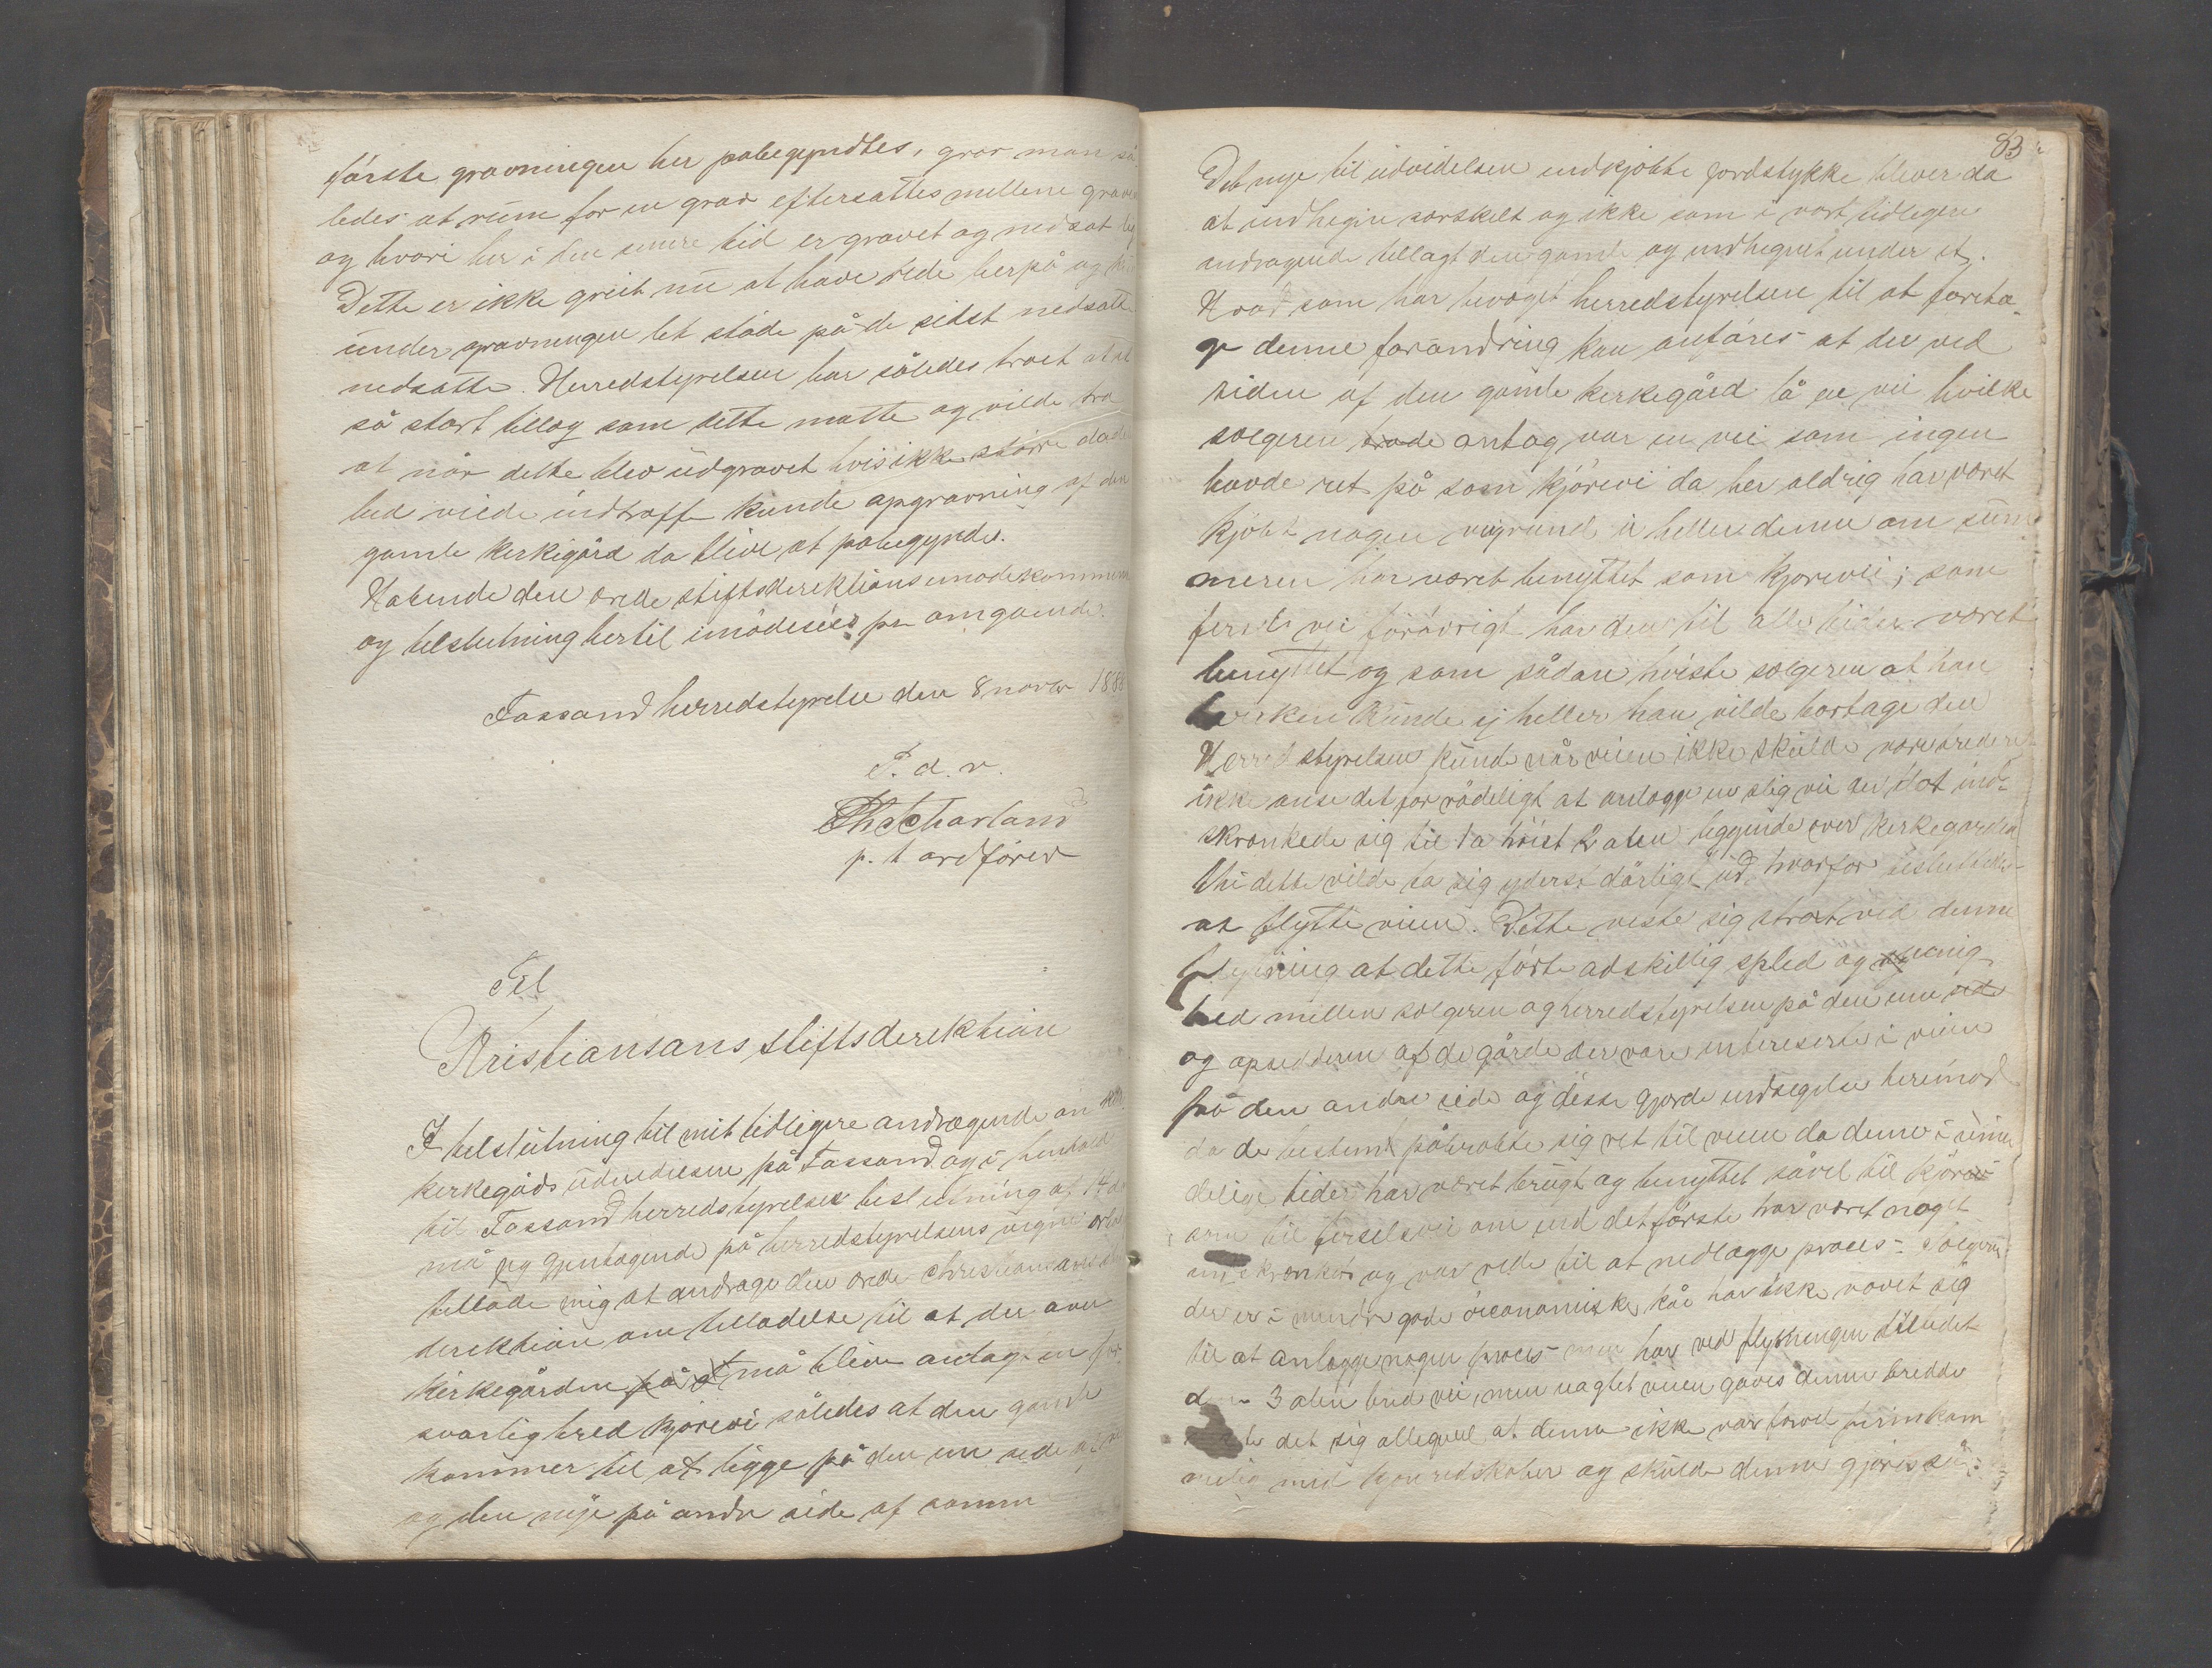 förste gravningen her pabegyndtes, grov man så
ledes at rum for en grav eftersattes mellem grave
og hvori her i den senere tid er gravet og nedsat
Dette er ikke greit nu at have rede herpå og
under gravningen let stöde på de sidst nedsatte
nedsatte. Herredstyrelsen har således troet at et
så stort tillæg som dette matte og vilde
at når dette blev udgravet hvis ikke större döde
lied vilde indtræffe kunde opgravning af den
gamle kerkegård da blive at pabegynde.
Habende den ærede stiftsderektions imödekommen
og telslutning hertil imödesees pr omgaende.
Fassand herredstyrelse den 8 novbr 188
P. d. v.
p. t ordförer
Til
Kristiansans stiftsderektion
I telslutning til mit tidligere andragende om
kerkegåds udvidelsen på Fassand og i henhold
til Fassand herredstyrelses beslutning af 14 d
må jeg gjentagende på herredstyrelsens vegne
tillade mig at andrage den ærede Christiansans
derektion om telladelse til at der over
kirkegården på F må blive anlagt en for
svarlig bred kjörevei således at den gamle
kommer til at ligge på den ene side af
og den nye på andre side af samme
83
Det nye til udvidelsen indkjöbte jordstykke bliver da
at indhegne særskilt og ikke som i vort tidligere
andragende tillagt den gamle og indhegnet under et.
Hvad som har bevæget herredstyrelsen til at foreta
ge denne forandring kan anföres at der ved
siden af den gamle kerkegård lå en vei hvilke
sælgeren trode antog var en vei som ingen
havde ret på som kjörevei da her aldrig har været
kjöbt nogen veigrund ei heller denne om som
meren har været benyttet som kjörevei; som
ferdsvei forövrigt har den til alle tider været
benyttet og som sådan vidste sælgeren at han
hverken kunde ej heller han vilde bortage den
Herredstyrelsen kunde når veien ikke skulde være
ikke anse det for rådeligt at anlægge en slig vei
skrænkede sig til 1 a höist 2 alen liggende over kerkegarden
thi dette vilde ta sig yderst dårligt ud, hvorfor besluttedes
at flytte veien. Dette viste sig strax ved denne
flytning at dette förte adskillig splid og uenig
hed mellem sælgeren og herredstyrelsen på den ene side
og opsidderen af de gårde der vare intereserte i veien
på den andre side og disse gjorde indsegelse herimod
da de bestemt påberabte sig ret til veien da denne i umin
delige tider har været brugt og benyttet såvel til kjörevei
som til ferselsvei om end det förste har været noget
indskrænket og var rede til at nedlægge proces. Sælgeren
der er i mindre gode öconomiske kår har ikke vovet sig
til at anlægge nogen proces men har ved flytningen tilbudet
dem 3 alen bred vei, men uagtet veien gaves denne bredde
det sig alligevel at denne ikke var forvel firemkom
melig med kjöreredskaber og skulde denne gjöres så